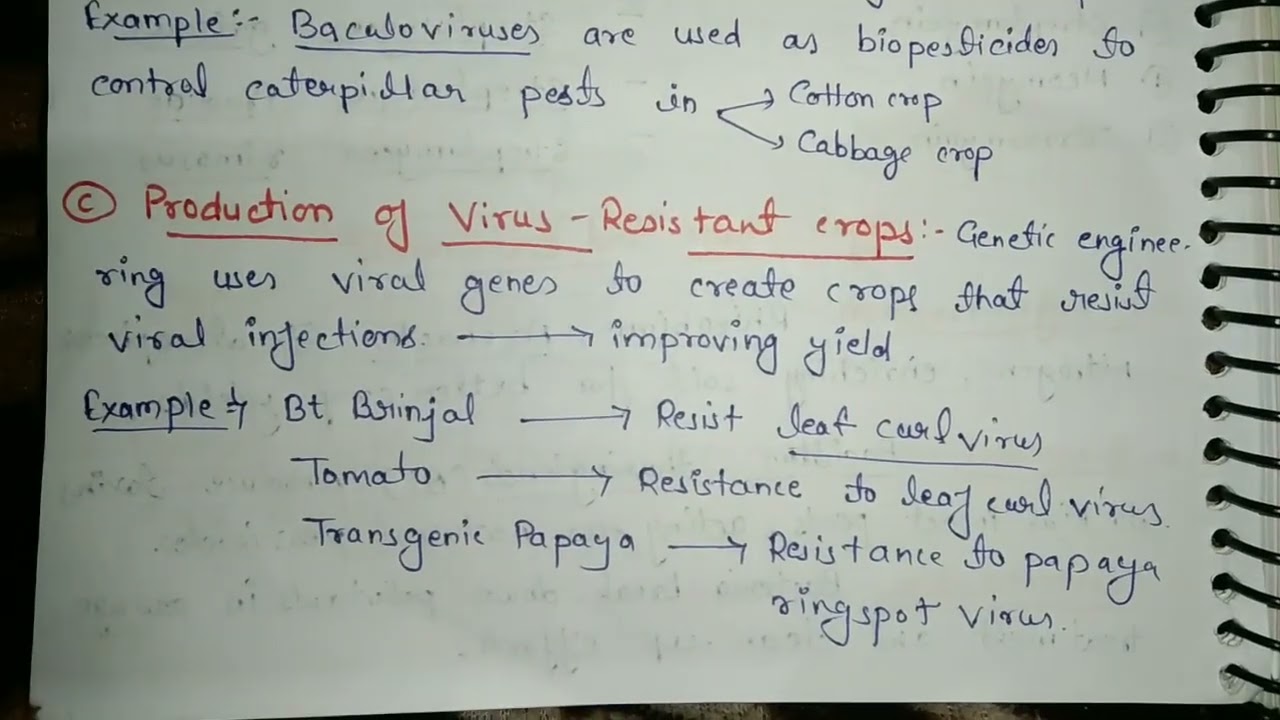 Example:- Baculoviruses are used as biopesticides to
control caterpillar pests in → Cotton crop
→ Cabbage crop
(C) Production of Virus-Resistant crops:- Genetic enginee-
ring uses viral genes to create crops that resist
viral injections. → improving yield.
Example → Bt. Brinjal → Resist leaf curl virus
Tomato → Resistance to leaf curl virus.
Transgenic Papaya → Resistance to papaya
ringspot virus.